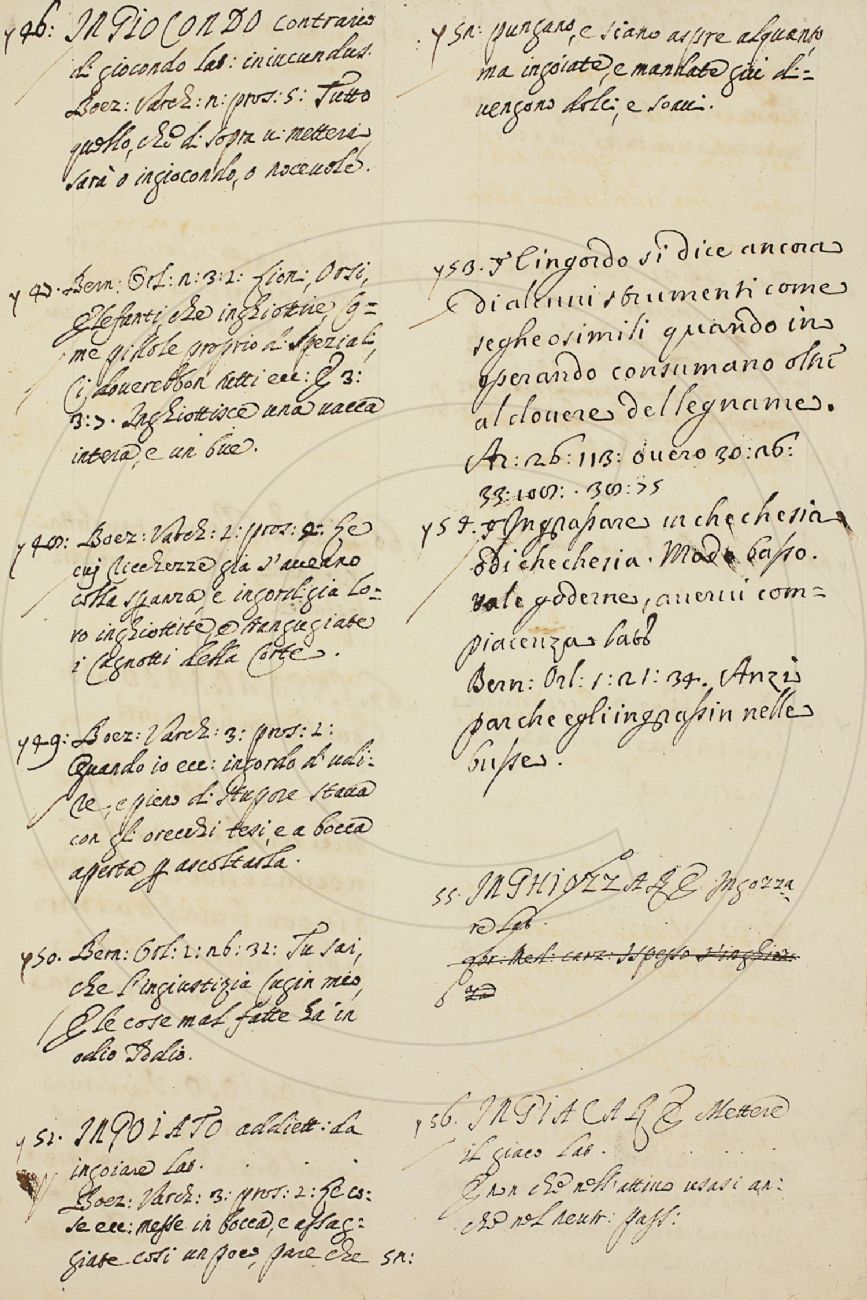 y 46: INGIOCONDO contrario
di giocondo lat: iniucundus.
Boez: Varch: 2: pros: 5: Tutto
quello, che di sopra vi metterai
sarà o ingiocondo, o nocevole.
y 47. Bern: Orl: 2: 3: 2: Lion, Orsi,
Elefanti, che inghiottire, co-
me pillole proprio di Speziali,
Ci doverebbon tutti ecc: E 3:
3: 7. Inghiottisce una vacca
intera, e un bue.
y 48: Boez: Varch: 1: pros: 4: Le
cui ricchezze già s'aveano
colla speranza, e ingordigia lo-
ro inghiottite, e trangugiate
i Cagnotti della Corte.
y 49: Boez: Varch: 3: pros: 1:
Quando io ecc: ingordo d'udi-
re, e pieno di stupore stava
con gli orecchi tesi, e a bocca
aperta p ascoltarla.
y 50. Bern: Orl: 1: 26: 32: Tu sai,
che l'ingiustizia cugin mio,
E le cose mal fatte ha in
odio Iddio.
y 51. INGOIATO addiett: da
ingoiare lat.
Boez: Varch: 3: pros: 1: Le co-
se ecc: messe in bocca, e assag-
giate così un poco, pare che 52:
y 52: pungano, e siano aspre alquanto
ma ingoiate, e mandate giù di-
vengono dolci, e soavi.
y 53. L'ingordo si dice ancora
di alcuni strumenti come
seghe o simili quando in
operando consumano oltre
al dovere del legname.
Ar: 26: 113: overo 30: 26:
33: 108: . 38: 55
y 54. Ingrassare in che che sia
o di che che sia. Modo basso.
vale goderne, avervi com-
piacenza latt
Bern: Orl: 1: 21: 34. Anzi
par che egli ingrassin nelle
busse.
55. INGHIOZZARE Ingozza-
re Lat.
y 56. INGIACARE Mettere
il giaco Lat.
E non che nell'attivo usasi an-
che nel neutr: pass: